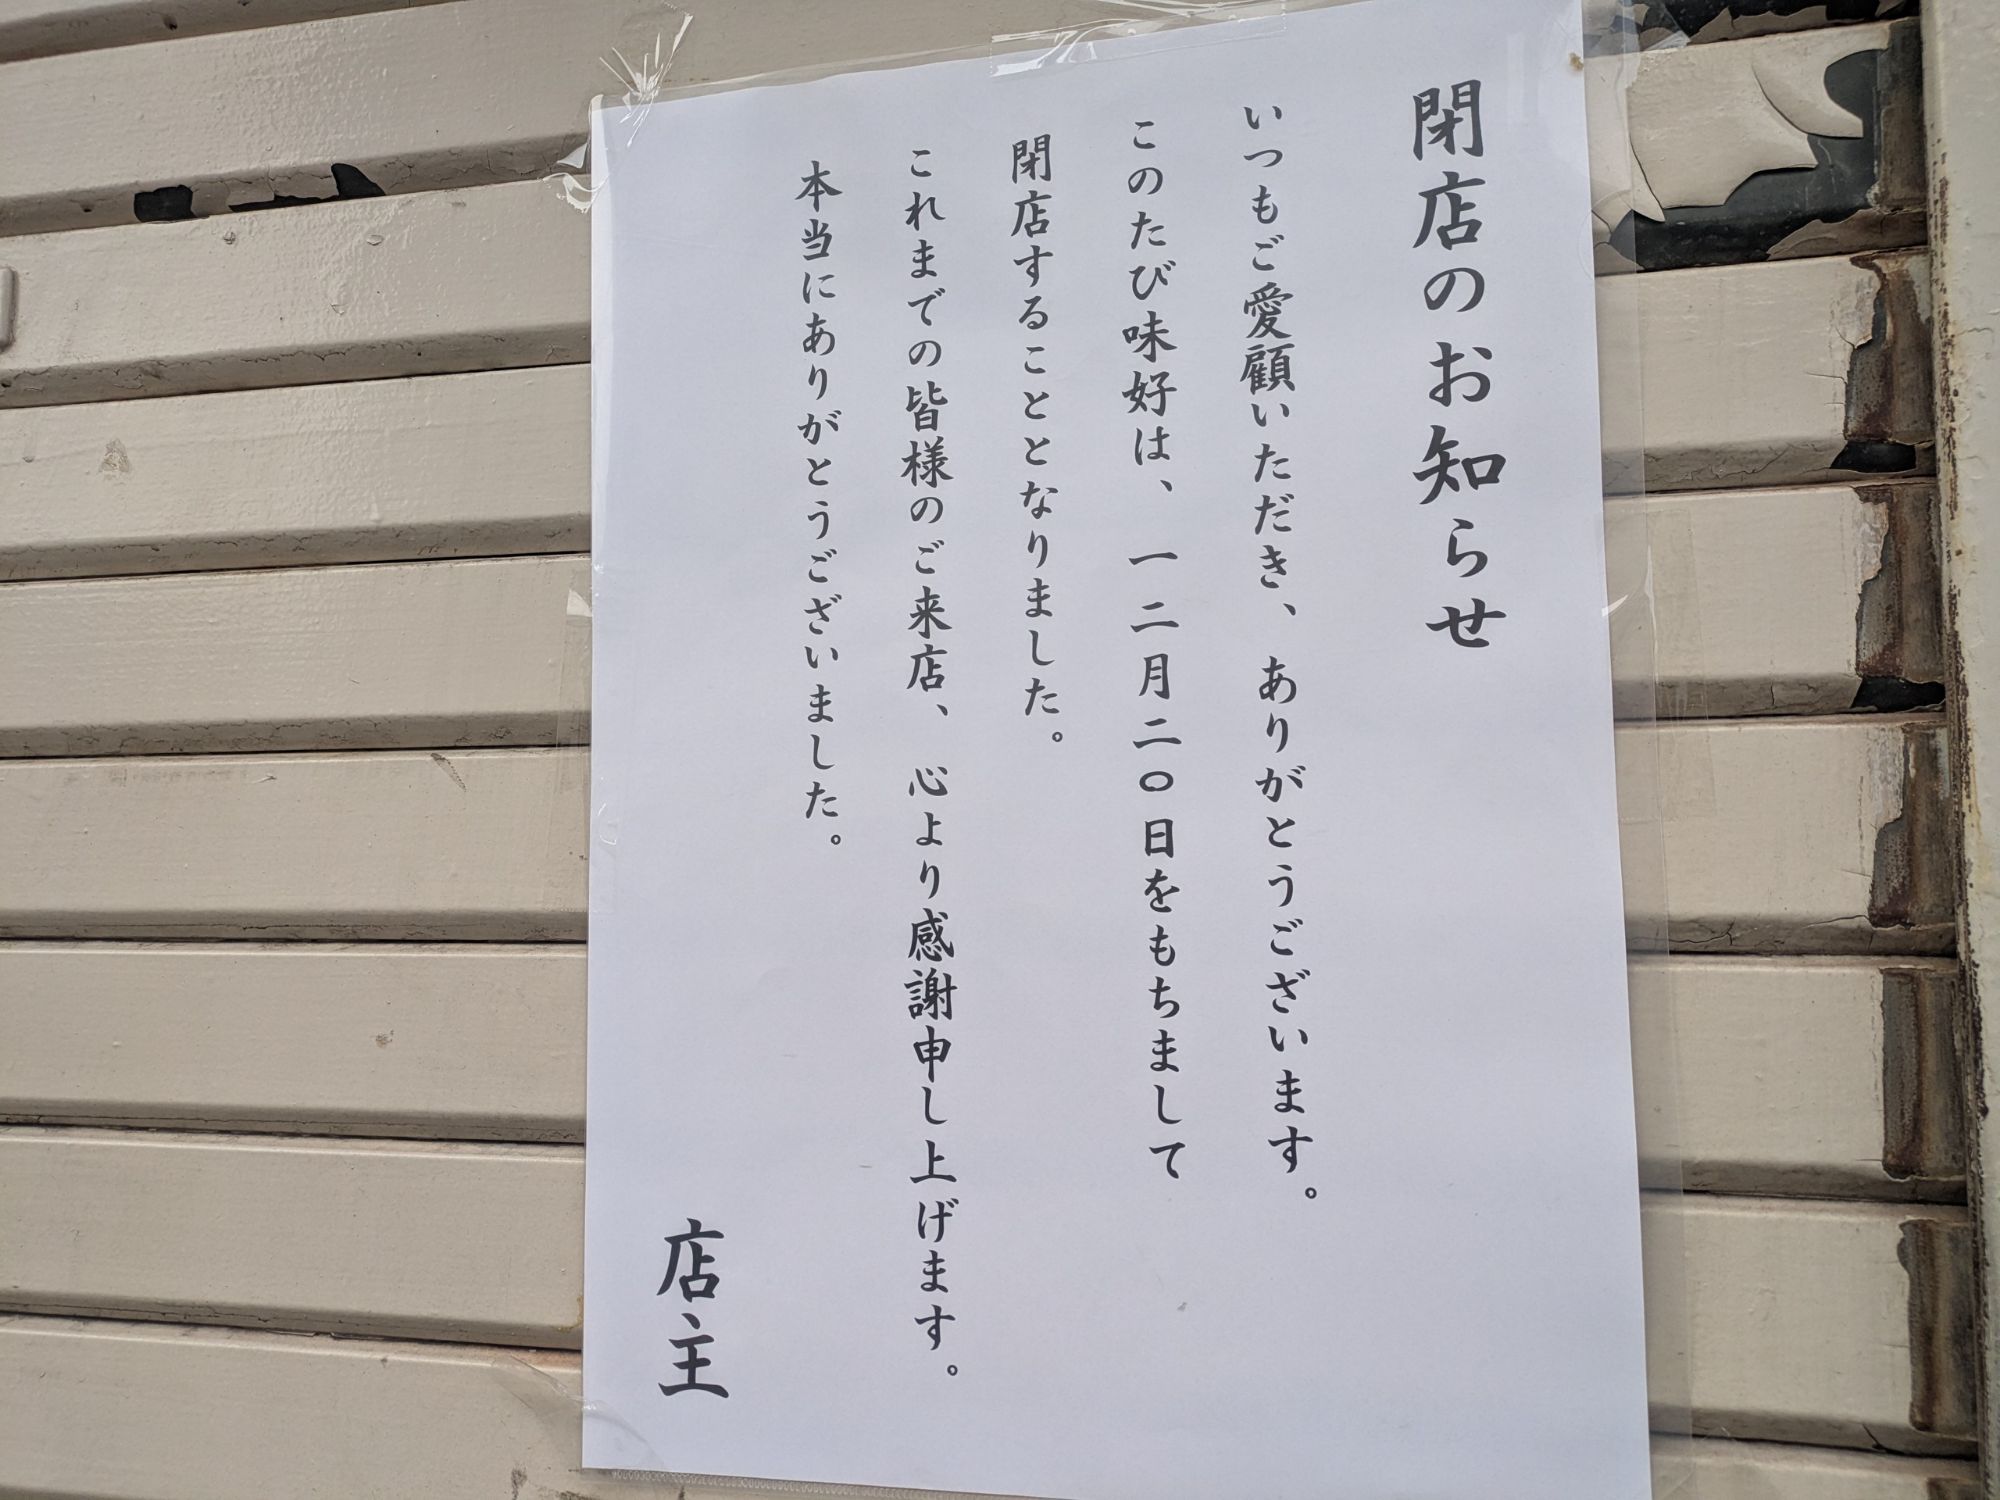 閉店のお知らせ
いつもご愛顧いただき、ありがとうございます。
このたび味好は、一二月二〇日をもちまして
閉店することとなりました。
これまでの皆様のご来店、心より感謝申し上げます。
本当にありがとうございました。
店主